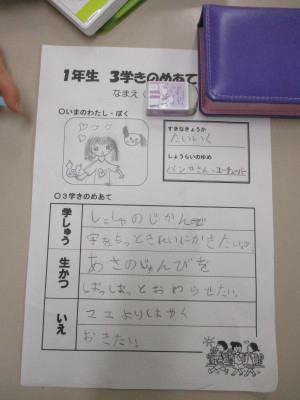 1年生 3学きのめあて
なまえ
○いまのわたし・ぼく
すきなきょうか
たいいく
しょうらいのゆめ
パンやさん・ユーチューバー
○3学きのめあて
学しゅう
しょしゃのじかん
字をもっときれいにかきたいな
生かつ
あさのじゅんびを
ぱっぱっとおわらせたい。
いえ
ママよりはやく
おきたい。